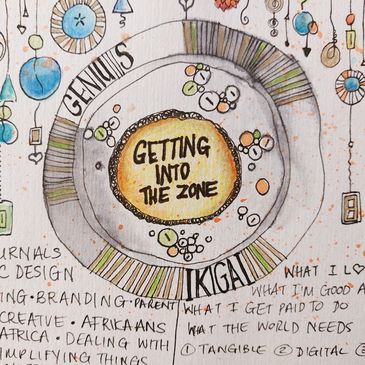 GENIUS
GETTING
INTO
THE ZONE
IKIGAI
URNALS
C DESIGN
ING • BRANDING • PARENT
CREATIVE • AFRIKAANS
AFRICA • DEALING WITH
MPLIFYING THINGS
WHAT I L♡
WHAT I'M GOOD A
WHAT I GET PAID TO DO
WHAT THE WORLD NEEDS
① TANGIBLE ② DIGITAL ③